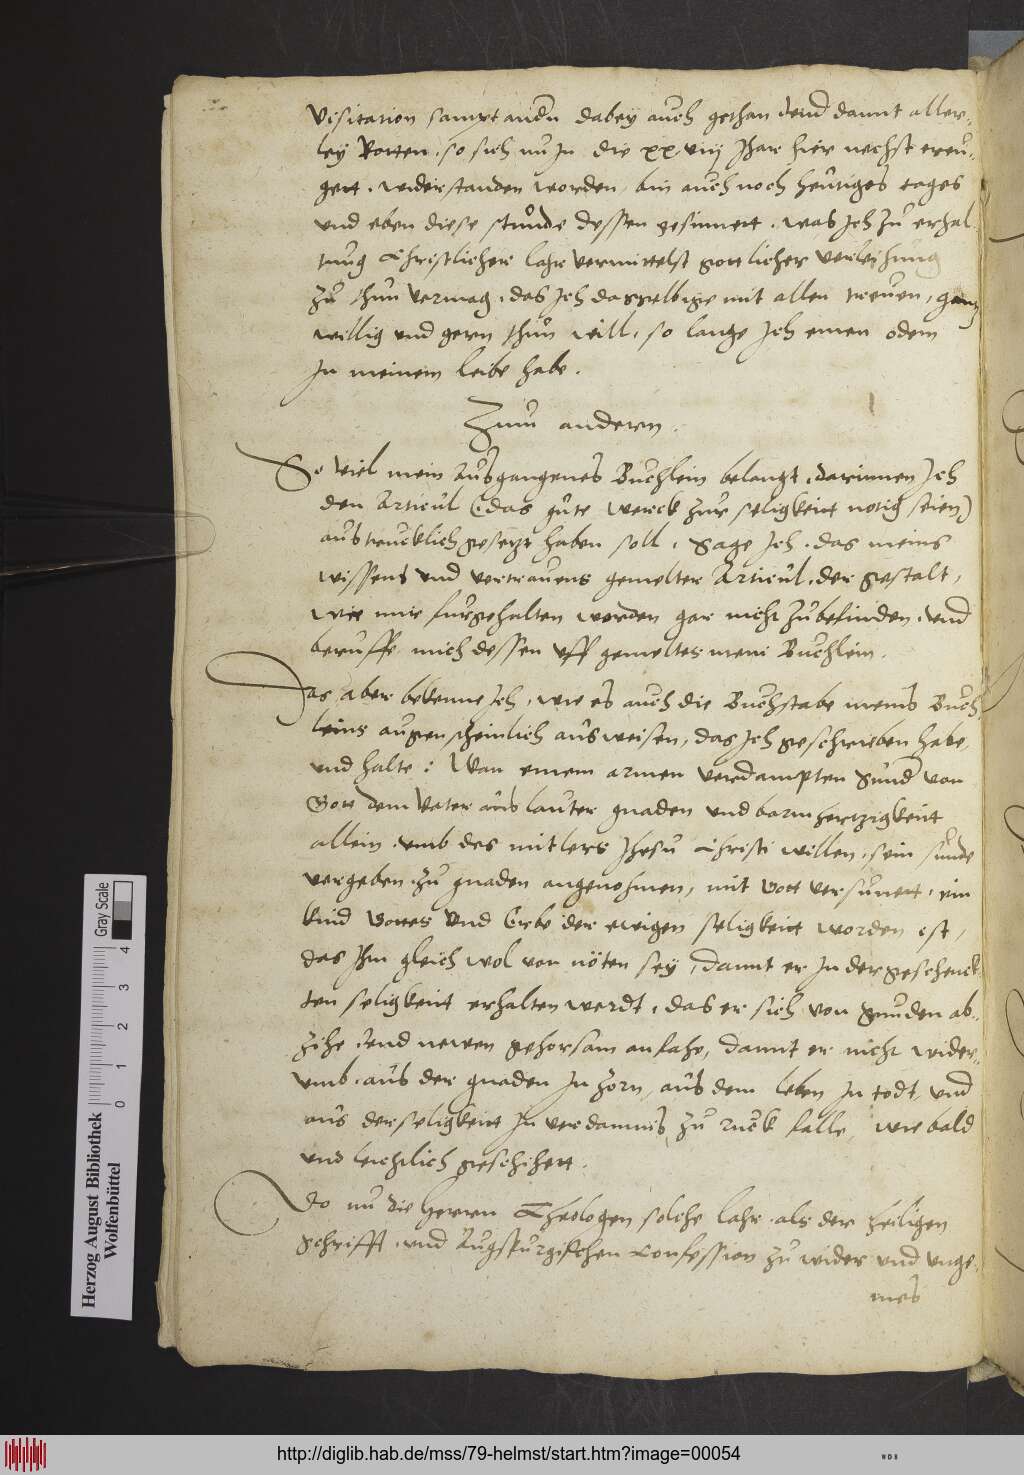 Visitation sampt andern dabey auch gethan vnd damit aller-
ley Rotten, so sich nu In die xxviij Jhar hier nechst ereu-
gett, widerstanden worden, bin auch noch heutiges tages
vnd eben diese stunde dessen gesinnett, was Ich zu erhal-
tung Christlicher lahr vermittelst gottlicher verleihung
zu thun vermag, das Ich dasselbige mit allen treuen, gantz
willig vnd gern thun will, so lange Ich einen odem
In meinem leibe habe.
Zum anderen.
So viel mein Ausgangenes Buchlein belangt, darinnen Ich
den Articul (das gute werck zur seligkeitt notig seien)
austrucklich gesetzt haben soll, Sage Ich, das meins
wissens vnd vertrauens gemelter Articul, der gestalt,
wie mir furgehalten worden gar nicht zubefinden, vnd
beruffe mich dessen vff gemeltes mein Buchlein.
Das aber bekenne Ich, wie es auch die Buchstabe meins Buch-
leins augenscheinlich ausweisen, das Ich geschrieben habe,
vnd halte: Wan einem armen verdampten Sunder von
Gott dem Vater aus lauter gnaden vnd barmhertzigkeitt
allein, vmb des mitlers Jhesu Christi willen, sein sunde
vergeben, zu gnaden angenohmen, mit Gott versunett, ein
kind Gottes vnd Erbe der ewigen seligkeitt worden ist,
das Ihm gleich wol von nöten sey, damit er In der geschenck-
ten seligkeitt erhalten werdt, das er sich von sunden ab-
zihe vnd newen gehorsam anfahe, damit er nicht wider-
vmb, aus der gnaden In zorn, aus dem leben In todt, vnd
aus der seligkeitt In verdamnis, zu ruck falle, wie bald
vnd leichtlich geschihett.
Do nu die Herrn Theologen solche lahr, als der heiligen
schrifft, vnd Augspurgischen Confession zu wider vnd unge-
mes
Herzog August Bibliothek
Wolfenbüttel
0 1 2 3 4
Gray Scale
http://diglib.hab.de/mss/79-helmst/start.htm?image=00054